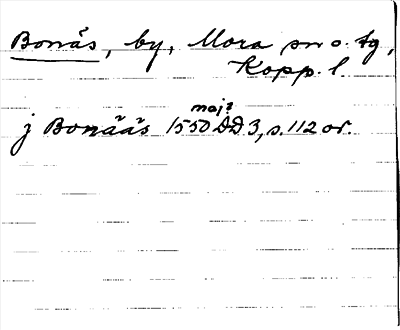 Bonäs, by, Mora sn o. tg,
Kopp. l
maj?
j Bonääs 1550 DD 3, s. 112 or.